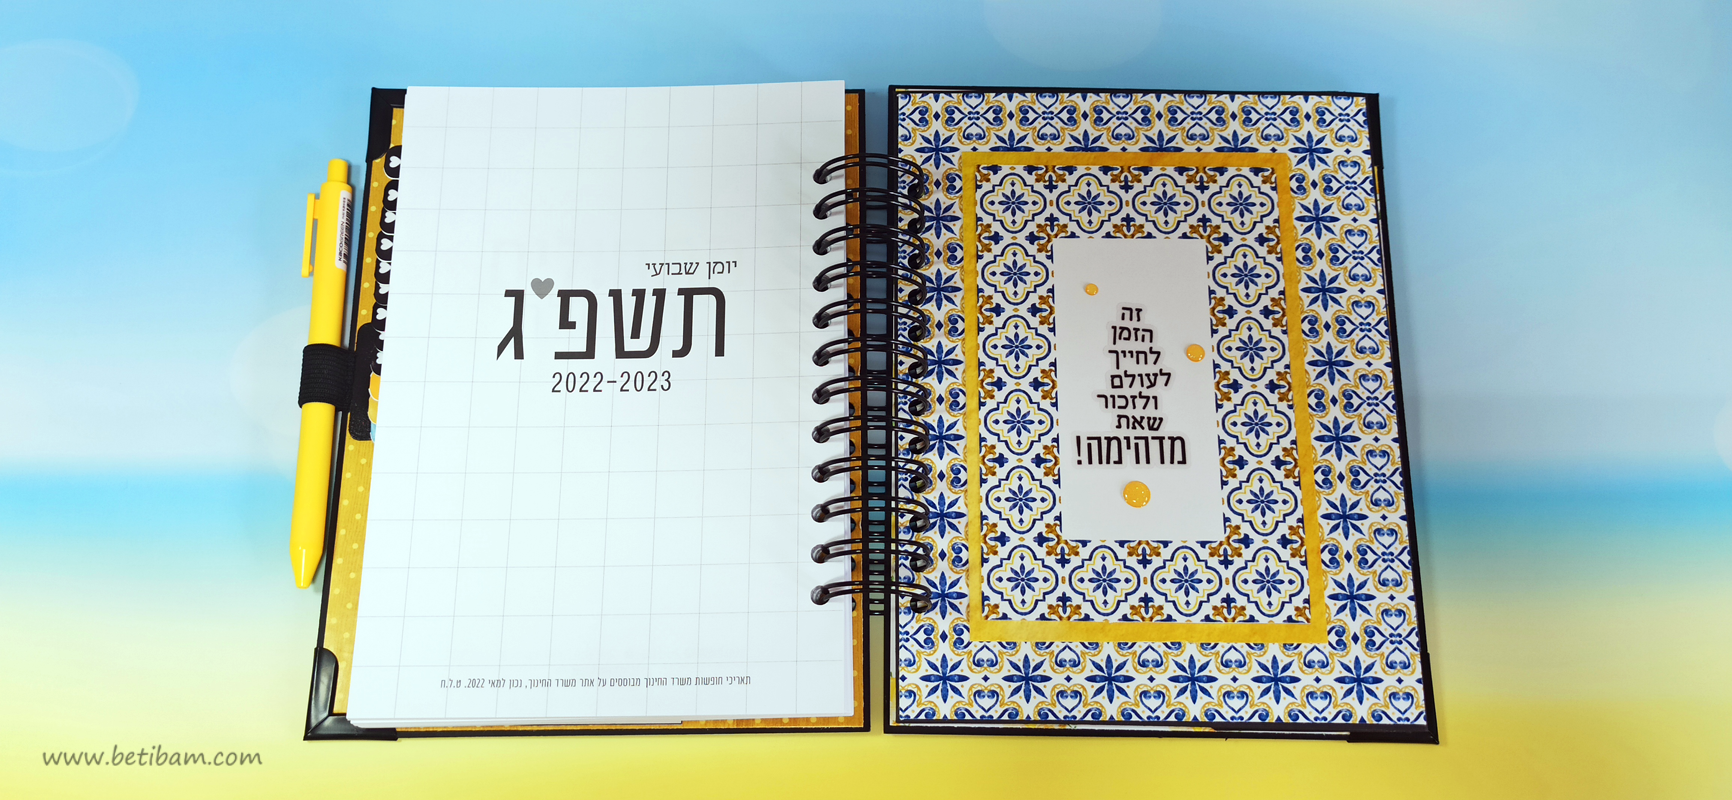 יומן שבועי
תשפ"ג
2022-2023
תאריכי חופשות משרד החינוך מבוססים על אתר משרד החינוך, נכון למאי 2022. ט.ל.ח
זה
הזמן
לחייך
לעולם
ולזכור
שאת
מדהימה!
www.betibam.com